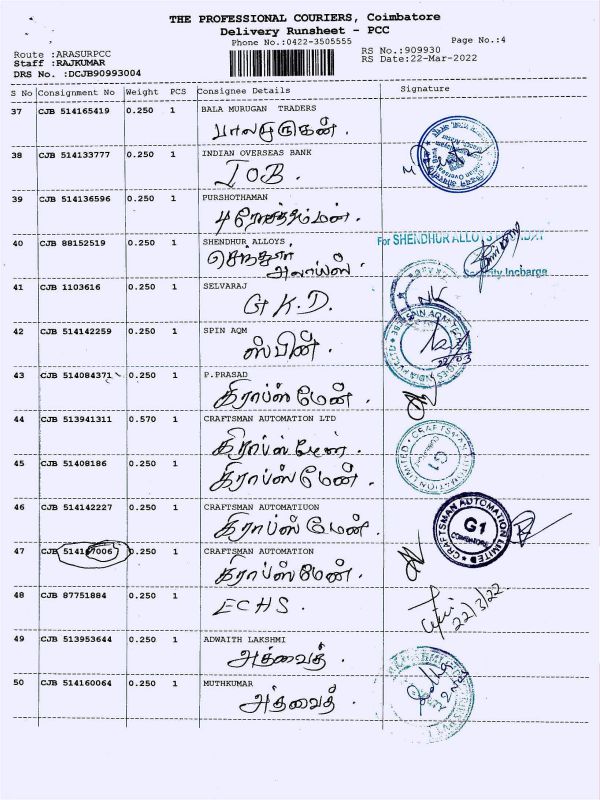 THE PROFESSIONAL COURIERS, Coimbatore
Delivery Runsheet - PCC
Phone No.:0422-3505555
Page No.:4
Route :ARASURPCC
RS No.:909930
Staff :RAJKUMAR
RS Date:22-Mar-2022
DRS No. :DCJB90993004
S No Consignment No Weight PCS Consignee Details Signature
37 CJB 514165419 0.250 1 BALA MURUGAN TRADERS
பாலமுருகன்.
38 CJB 514133777 0.250 1 INDIAN OVERSEAS BANK
IOB.
39 CJB 514136596 0.250 1 PURSHOTHAMAN
புரோசத்தம்மன்.
40 CJB 88152519 0.250 1 SHENDHUR ALLOYS,
For SHENDHUR ALLOYS
செந்தூர்
அலாய்ஸ்.
Security Incharge
41 CJB 1103616 0.250 1 SELVARAJ
GKD.
42 CJB 514142259 0.250 1 SPIN AQM
ஸ்பின்.
22/03
43 CJB 514084371 0.250 1 P.PRASAD
கிராப்ஸ்மேன்.
44 CJB 513941311 0.570 1 CRAFTSMAN AUTOMATION LTD
கிராப்ஸ்மேன்.
CRAFTSMAN AUTOMATION LIMITED
G1
45 CJB 51408186 0.250 1
கிராப்ஸ்மேன்.
46 CJB 514142227 0.250 1 CRAFTSMAN AUTOMATIUON
கிராப்ஸ்மேன்.
CRAFTSMAN AUTOMATION LIMITED
G1
COIMBATORE
47 CJB 0.250 1 CRAFTSMAN AUTOMATION
கிராப்ஸ்மேன்.
48 CJB 87751884 0.250 1
ECHS.
22/3/22
49 CJB 513953644 0.250 1 ADWAITH LAKSHMI
அத்வைத்.
50 CJB 514160064 0.250 1 MUTHKUMAR
அத்வைத்.